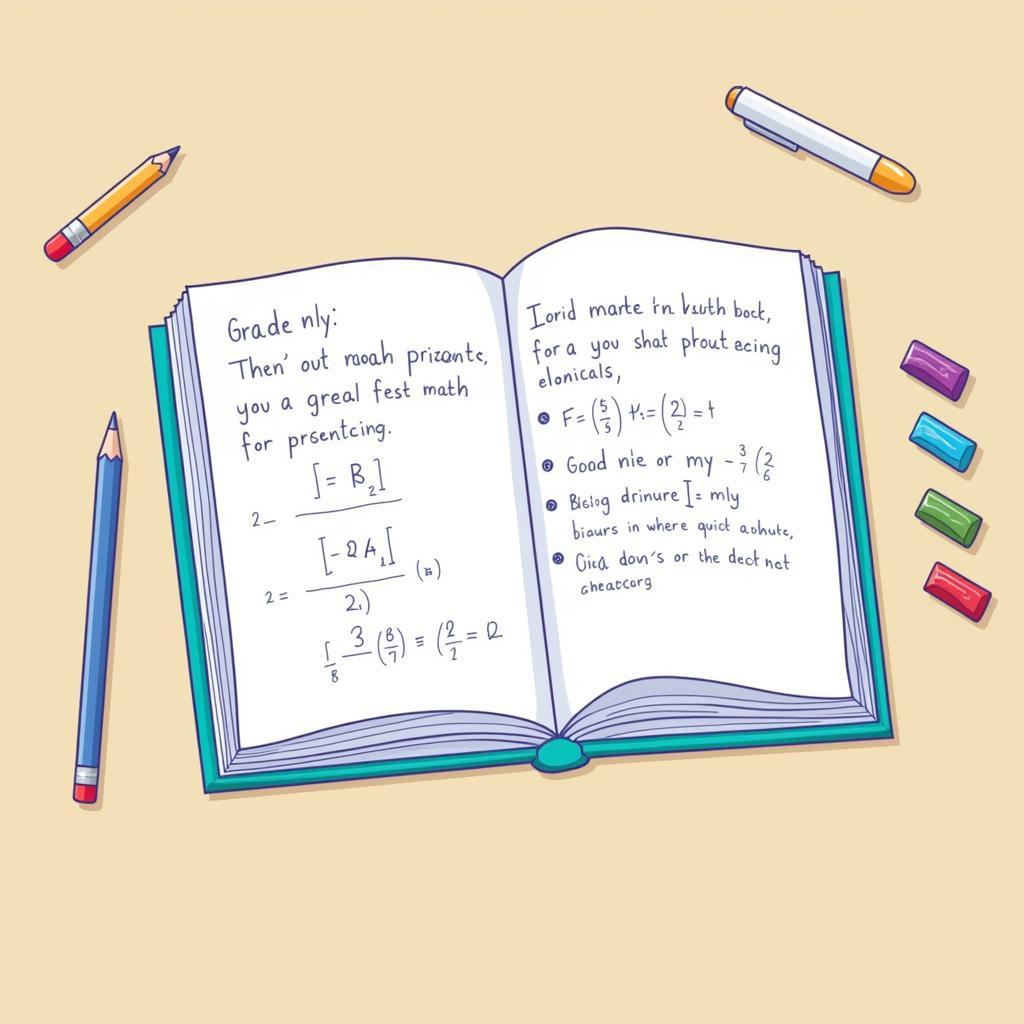 Grade nly:
Then' out moah prizante,
you a greal fest math
for prsentcing.
[= B₂]
2 –
[- 2 A₁]
2 = (s)
2.)
[/8 3 (8/7) ≡ (2/2 = 2
Iorid marte i'n ksuth bock,
for a you shat phout ecing
elonicals,
F = (5/5) k:= (2/2) = t
Good nie or my – 3/7 (2/6
Bislog drinure I= mly
biaurs in where quict aohute,
Cica don's or the dect not
gheatcorg